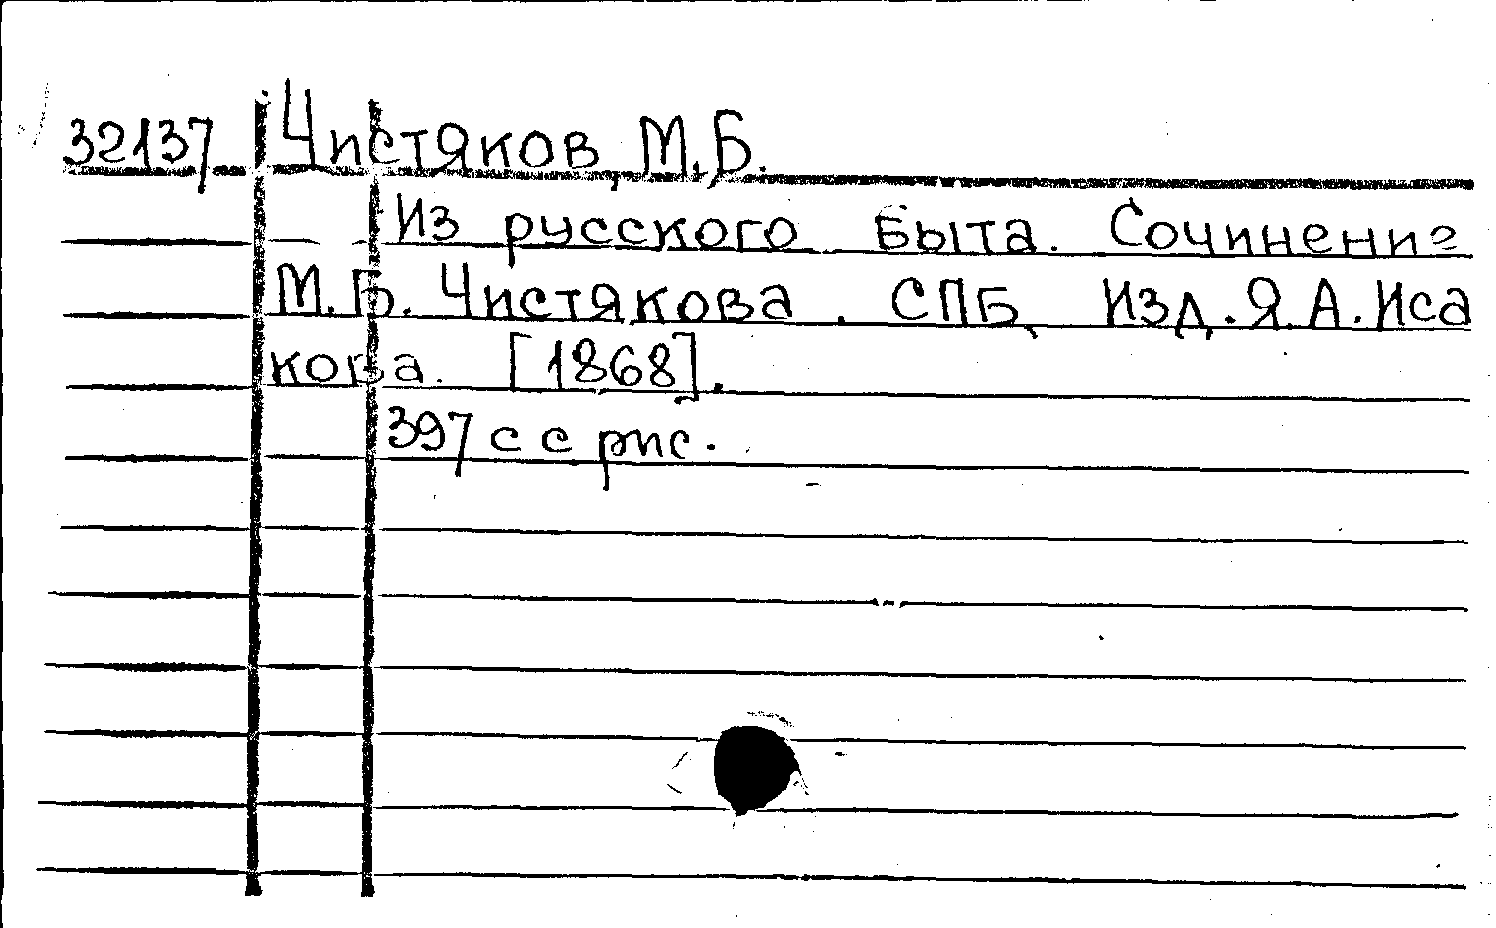 32137 Чистяков, М.Б.
Из русского быта. Сочинение
М.Б. Чистякова. СПБ, Изд. Я.А. Иса
кова. [1868].
397 с с рис.